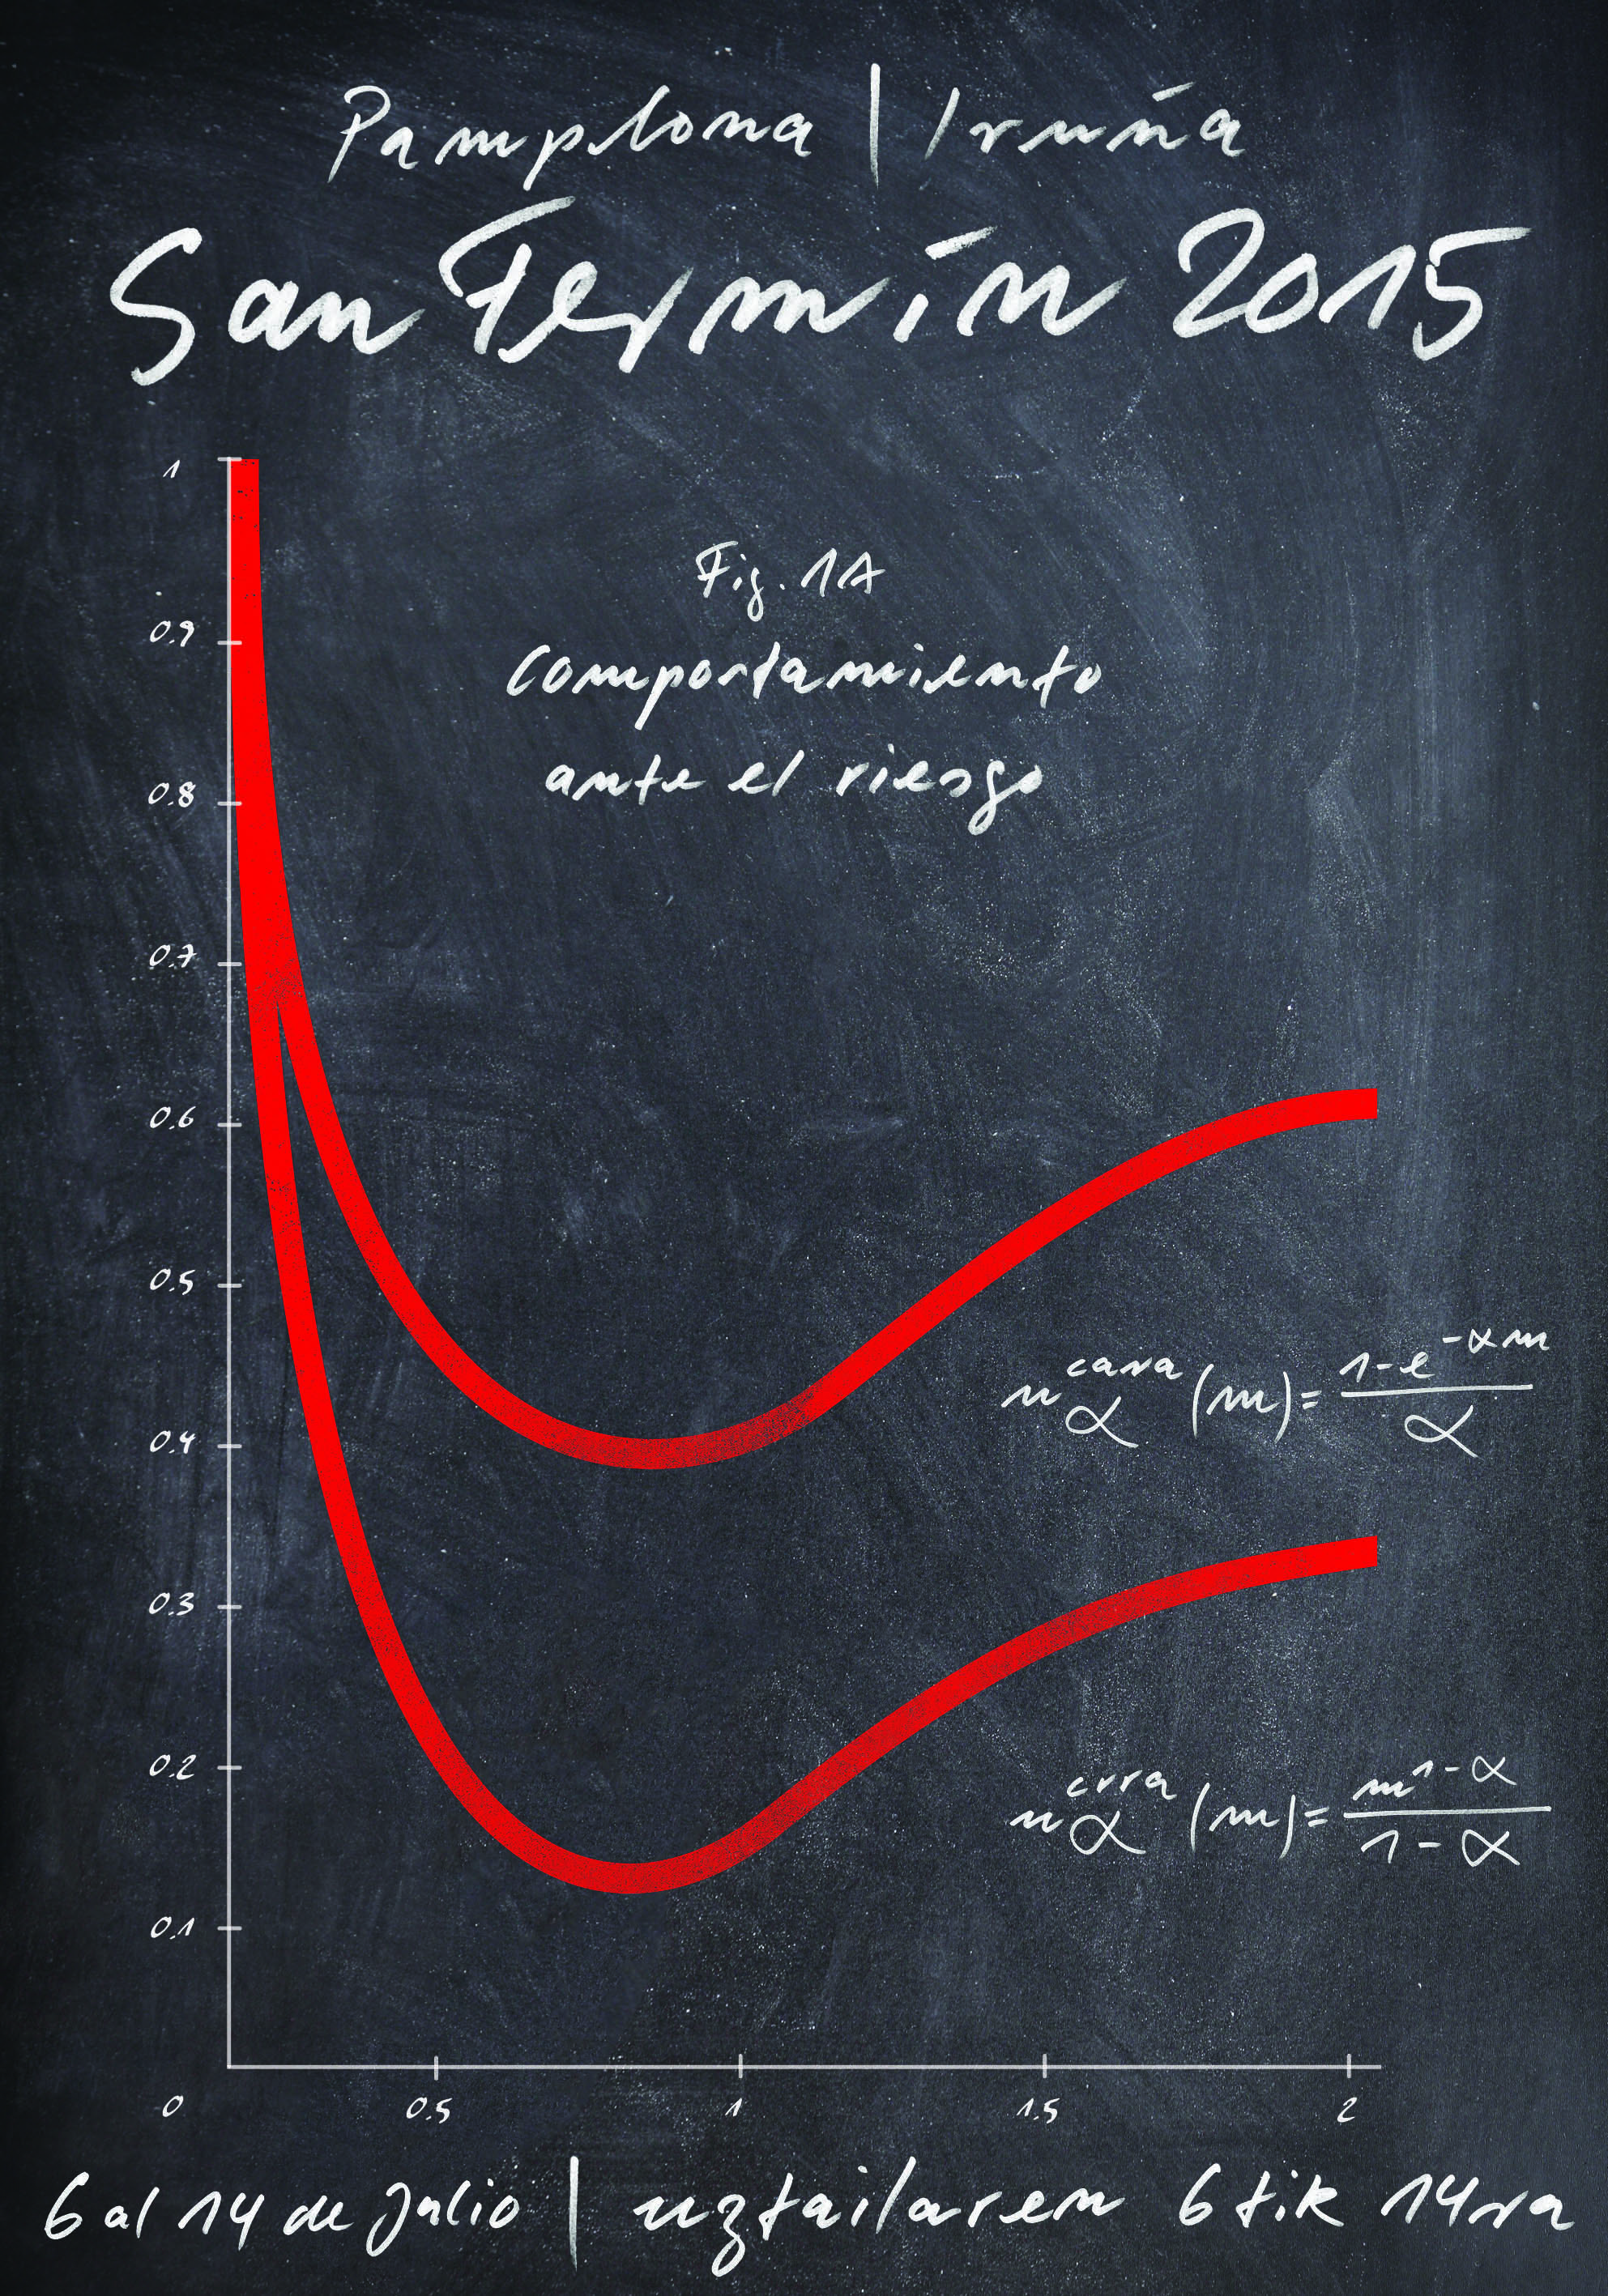 Pamplona | Iruña
San Fermín 2015
Fig. 1A
Comportamiento
ante el riesgo
1
0.9
0.8
0.7
0.6
0.5
0.4
0.3
0.2
0.1
u_α^cara (m) = (1-e^-αm)/α
u_α^crra (m) = (m^1-α)/(1-α)
0 0.5 1 1.5 2
6 al 14 de Julio | uztailaren 6tik 14ra